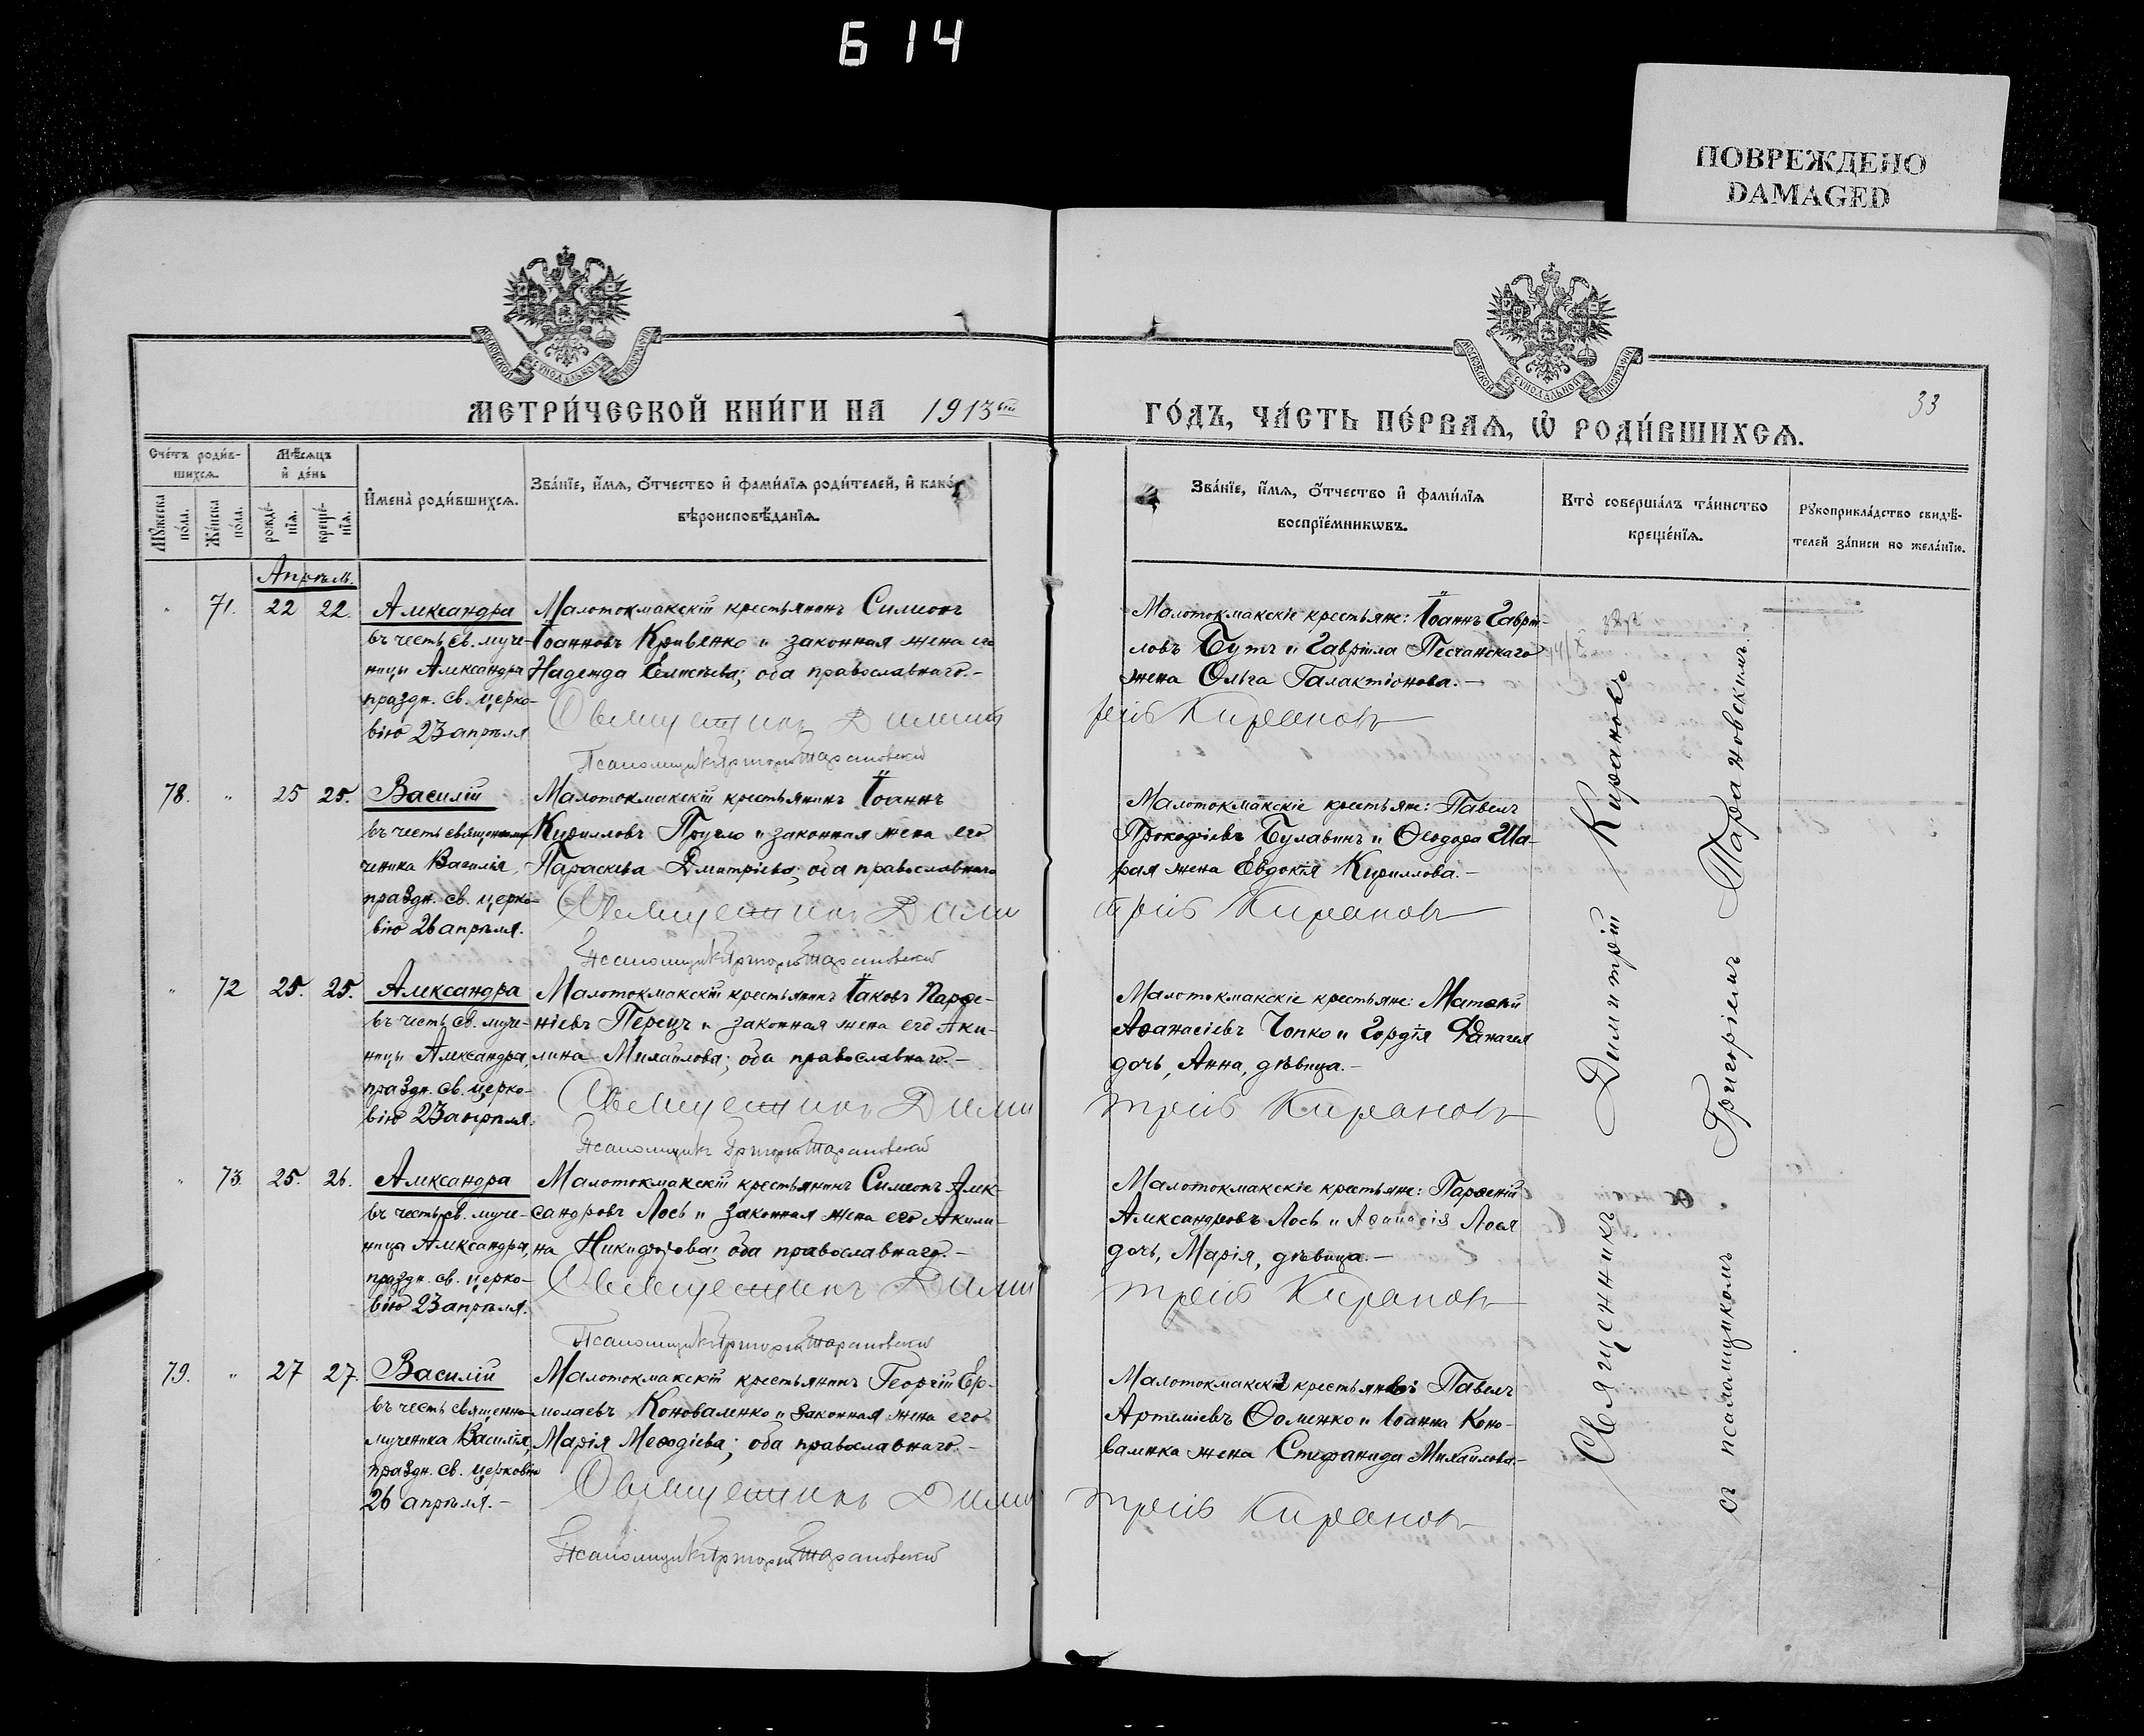 614
ПОВРЕЖДЕНО
DAMAGED
МОСКОВСКОЙ СѴНОДАЛЬНОЙ ТИПОГРАФІИ
МОСКОВСКОЙ СѴНОДАЛЬНОЙ ТИПОГРАФІИ
МЕТРИ́ЧЕСКОЙ КНИ́ГИ НА 1913ый
ГО́ДЪ, ЧА́СТЬ ПЕ́РВАѦ, Ѡ҆ РОДИ́ВШИХСѦ.
33
Сче́тъ роди́в-
шихсѧ.
Мꙋ́жеска
по́ла.
Же́нска
по́ла.
Мѣ́сѧцъ
и҆ де́нь
рожде́-
нїѧ.
креще́-
нїѧ.
И҆мена̀ роди́вшихсѧ.
Зва́нїе, и҆́мѧ, ѻ҆́тчество и҆ фами́лїѧ роди́телей, и҆ како́
вѣроисповѣ́данїѧ.
Зва́нїе, и҆́мѧ, ѻ҆́тчество и҆ фами́лїѧ
воспрїе́мникѡвъ.
Кто̀ соверша́лъ та́инство
креще́нїѧ.
Рꙋкоприкла́дство свидѣ́-
телей за́писи по жела́нїю.
Апрѣль.
" 71. 22 22. Александра
въ честь св. муче-
ницы Александра
праздн. св. церко-
вію 23 апрѣля
Малотокмакскій крестьянинъ Симеонъ
Іоанновъ Кривенко и законная жена его
Надежда Елисѣева; оба православнаго.-
Священникъ Димит
рій Киранов
Псаломщикъ Григорій Тарановский
Малотокмакскіе крестьяне: Іоаннъ Гаврі-
ловъ Бутъ и Гавріила Песчанскаго
жена Ольга Галактіонова.-
78. " 25 25. Василій
въ честь священному-
ченика Василія,
праздн. св. церко-
вію 26 апрѣля.
Малотокмакскій крестьянинъ Іоаннъ
Кирилловъ Пругло и законная жена его
Параскева Дмитріева; оба православнаго
Священникъ Дими
трій Киранов
Псаломщикъ Григорій Тарановский
Малотокмакскіе крестьяне: Павелъ
Прокофіевъ Булавинъ и Ѳеодора Ша-
рая жена Евдокія Кириллова.-
" 72 25. 25. Александра
въ честь св. муче-
ницы Александра,
праздн. св. церко-
вію 23 апрѣля.
Малотокмакскій крестьянинъ Іаковъ Парѳе-
ніевъ Перецъ и законная жена его Аки-
лина Михайлова; оба православнаго.-
Священникъ Дими
трій Киранов
Псаломщикъ Григорій Тарановский
Малотокмакскіе крестьяне: Матѳей
Аѳанасіевъ Чопко и Гордія Фанагея
дочь, Анна, дѣвица.-
" 73. 25. 26. Александра
въ честь св. муче-
ница Александра,
праздн. св. церко-
вію 23 апрѣля.
Малотокмакскій крестьянинъ Симеонъ Алек-
сандровъ Лось и законная жена его Акили-
на Никифорова; оба православнаго.-
Священникъ Дими
трій Киранов
Псаломщикъ Григорій Тарановский
Малотокмакскіе крестьяне: Парѳеній
Александровъ Лось и Аѳанасія Лося
дочь, Марія, дѣвица.-
79. " 27 27. Василій
въ честь священно-
мученика Василія,
праздн. св. церковію
26 апрѣля.-
Малотокмакскій крестьянинъ Георгій Ер-
молаевъ Коноваленко и законная жена его
Марія Меѳодіева; оба православнаго.-
Священникъ Дими
трій Киранов
Псаломщикъ Григорій Тарановский
Павелъ
Артеміевъ Ѳоменко и Іоанна Коно-
валенка жена Стефанида Михайлова.-
Священникъ Димитрій Кирановъ
съ псаломщикомъ Григоріемъ Тарановскимъ.